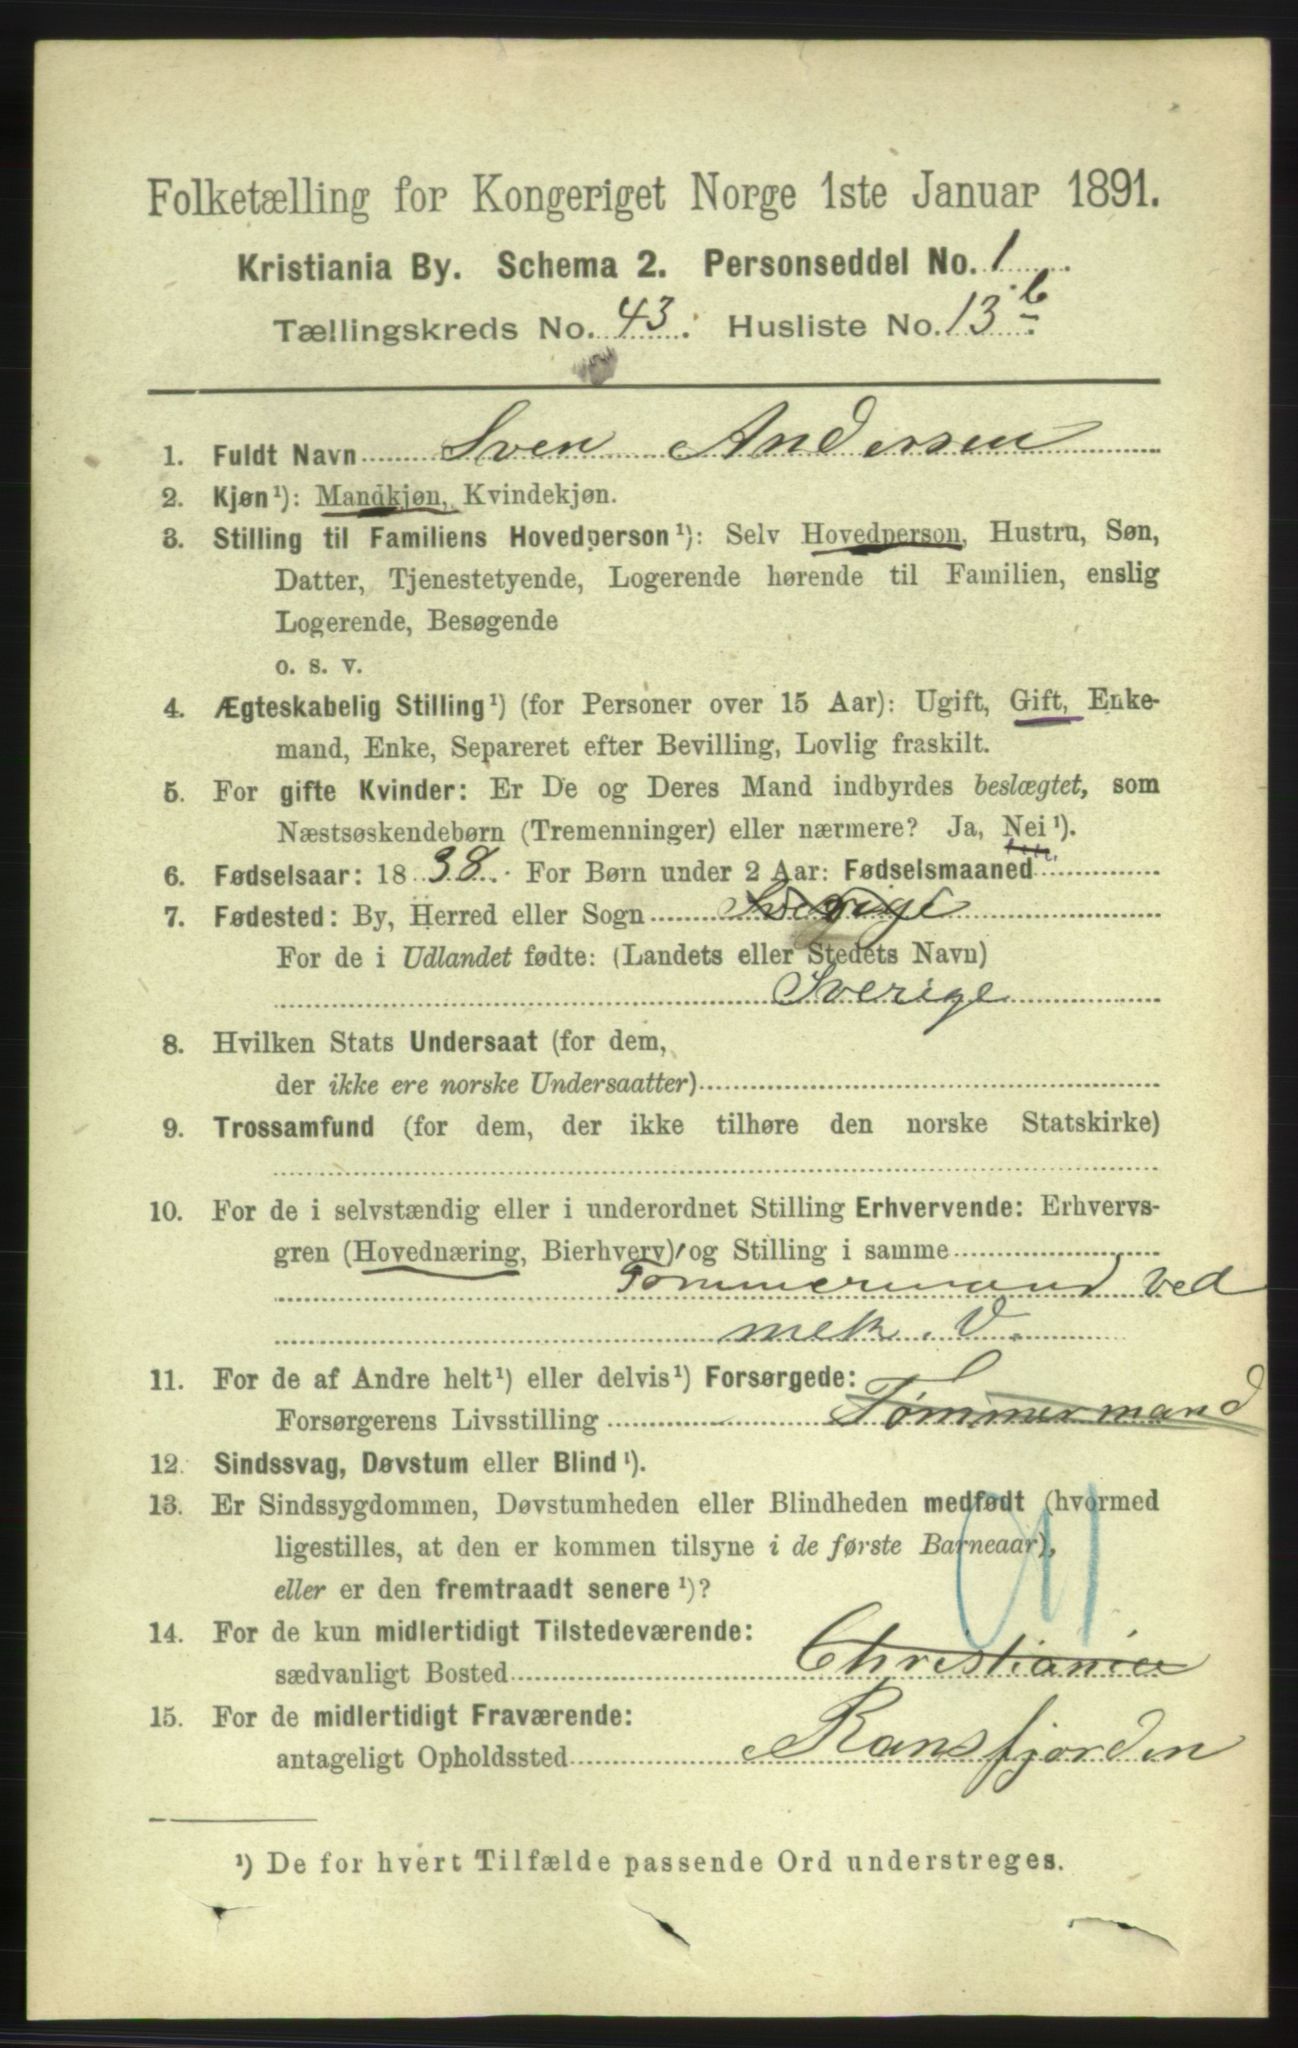 Folketælling for Kongeriget Norge 1ste Januar 1891.
Kristiania By. Schema 2. Personseddel No. 1
Tællingskreds No. 43. Husliste No. 13 b
1. Fuldt Navn Sven Andersen
2. Kjøn¹): Mandkjøn, Kvindekjøn.
3. Stilling til Familiens Hovedperson¹): Selv Hovedperson, Hustru, Søn,
Datter, Tjenestetyende, Logerende hørende til Familien, enslig
Logerende, Besøgende
o. s. v.
4. Ægteskabelig Stilling¹) (for Personer over 15 Aar): Ugift, Gift, Enke-
mand, Enke, Separeret efter Bevilling, Lovlig fraskilt.
5. For gifte Kvinder: Er De og Deres Mand indbyrdes beslægtet, som
Næstsøskendebørn (Tremenninger) eller nærmere? Ja, Nei¹).
6. Fødselsaar: 1838. For Børn under 2 Aar: Fødselsmaaned
7. Fødested: By, Herred eller Sogn Sverige
For de i Udlandet fødte: (Landets eller Stedets Navn)
Sverige
8. Hvilken Stats Undersaat (for dem,
der ikke ere norske Undersaatter)
9. Trossamfund (for dem, der ikke tilhøre den norske Statskirke)
10. For de i selvstændig eller i underordnet Stilling Erhvervende: Erhvervs-
gren (Hovednæring, Bierhverv) og Stilling i samme
Tømmermand ved
mek. V.
11. For de af Andre helt¹) eller delvis¹) Forsørgede:
Forsørgerens Livsstilling Tømmermand
12. Sindssvag, Døvstum eller Blind¹).
13. Er Sindssygdommen, Døvstumheden eller Blindheden medfødt (hvormed
ligestilles, at den er kommen tilsyne i de første Barneaar),
eller er den fremtraadt senere¹)?
14. For de kun midlertidigt Tilstedeværende:
sædvanligt Bosted Christiania
15. For de midlertidigt Fraværende:
antageligt Opholdssted Ransfjorden
¹) De for hvert Tilfælde passende Ord understreges.